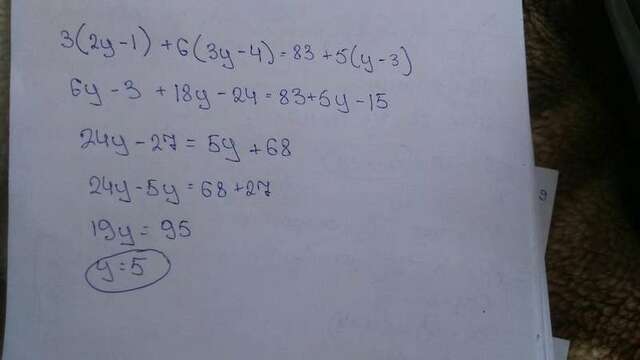 3(2y-1) + 6(3y-4) = 83 + 5(y-3)
6y - 3 + 18y - 24 = 83 + 5y - 15
24y - 27 = 5y + 68
24y - 5y = 68 + 27
19y = 95
y = 5
9